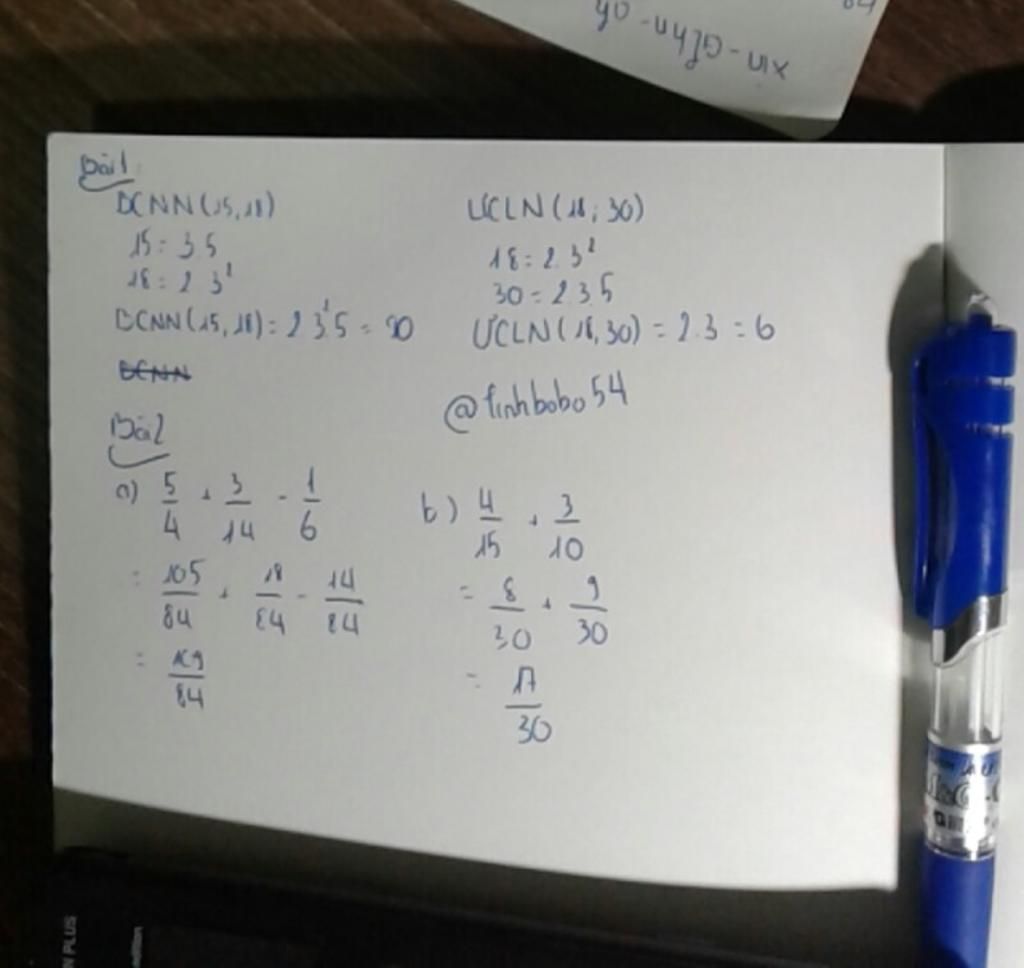 xin-Gfhn-oh
Bài 1:
BCNN(15,18)
15 = 3.5
18 = 2.3²
BCNN(15,18) = 2.3².5 = 90
BCNN
ƯCLN(18;30)
18 = 2.3²
30 = 2.3.5
ƯCLN(18,30) = 2.3 = 6
@finhbobo54
Bài 2
a) 5/4 + 3/14 - 1/6
= 105/84 + 18/84 - 14/84
= 109/84
b) 4/15 + 3/10
= 8/30 + 9/30
= 17/30
N PLUS